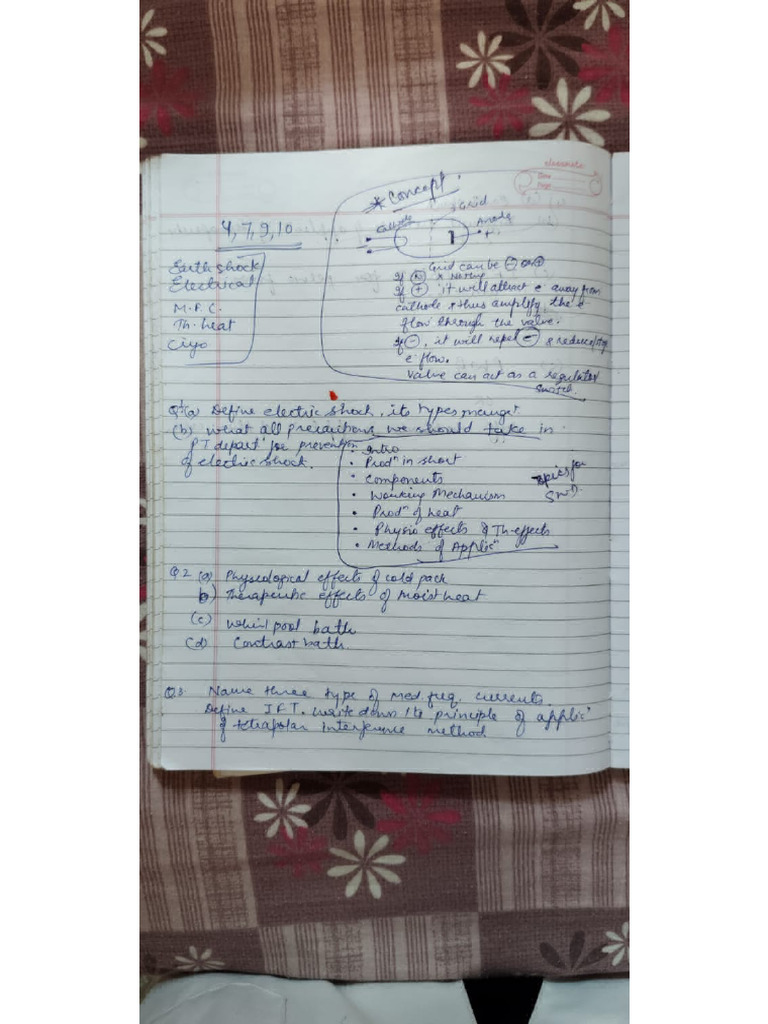 * Concept.
Grid
Cathode
Anode
+
4, 7, 9, 10
Earth shock
Electrical
M.F.C.
Th. heat
Ciyo
Grid can be ⊖ or ⊕
If Ⓝ × Nothing
If ⊕ it will attract e⁻ away from
cathode & thus amplify the e⁻
flow through the valve.
If ⊖, it will repel ⊖ & reduce/stop
e⁻ flow.
Valve can act as a regulator
switch.
Q1(a) Define electric shock, its types
(b) what all precautions we should take in
PT depart for prevention
of electric shock.
• Intro
• Prodⁿ in short
• Components
• Working Mechanism
• Prodⁿ of heat
• Physio effects & Th. effects
• Methods of Applicⁿ
Topics for
SWD
Q.2 (a) Physiological effects of cold pack
b) Therapeutic effects of moist heat
(c) whirl pool bath
(d) Contrast bath.
Q3. Name three type of med. freq. currents.
Define IFT. write down its principle of applicⁿ
of tetrapolar interference method